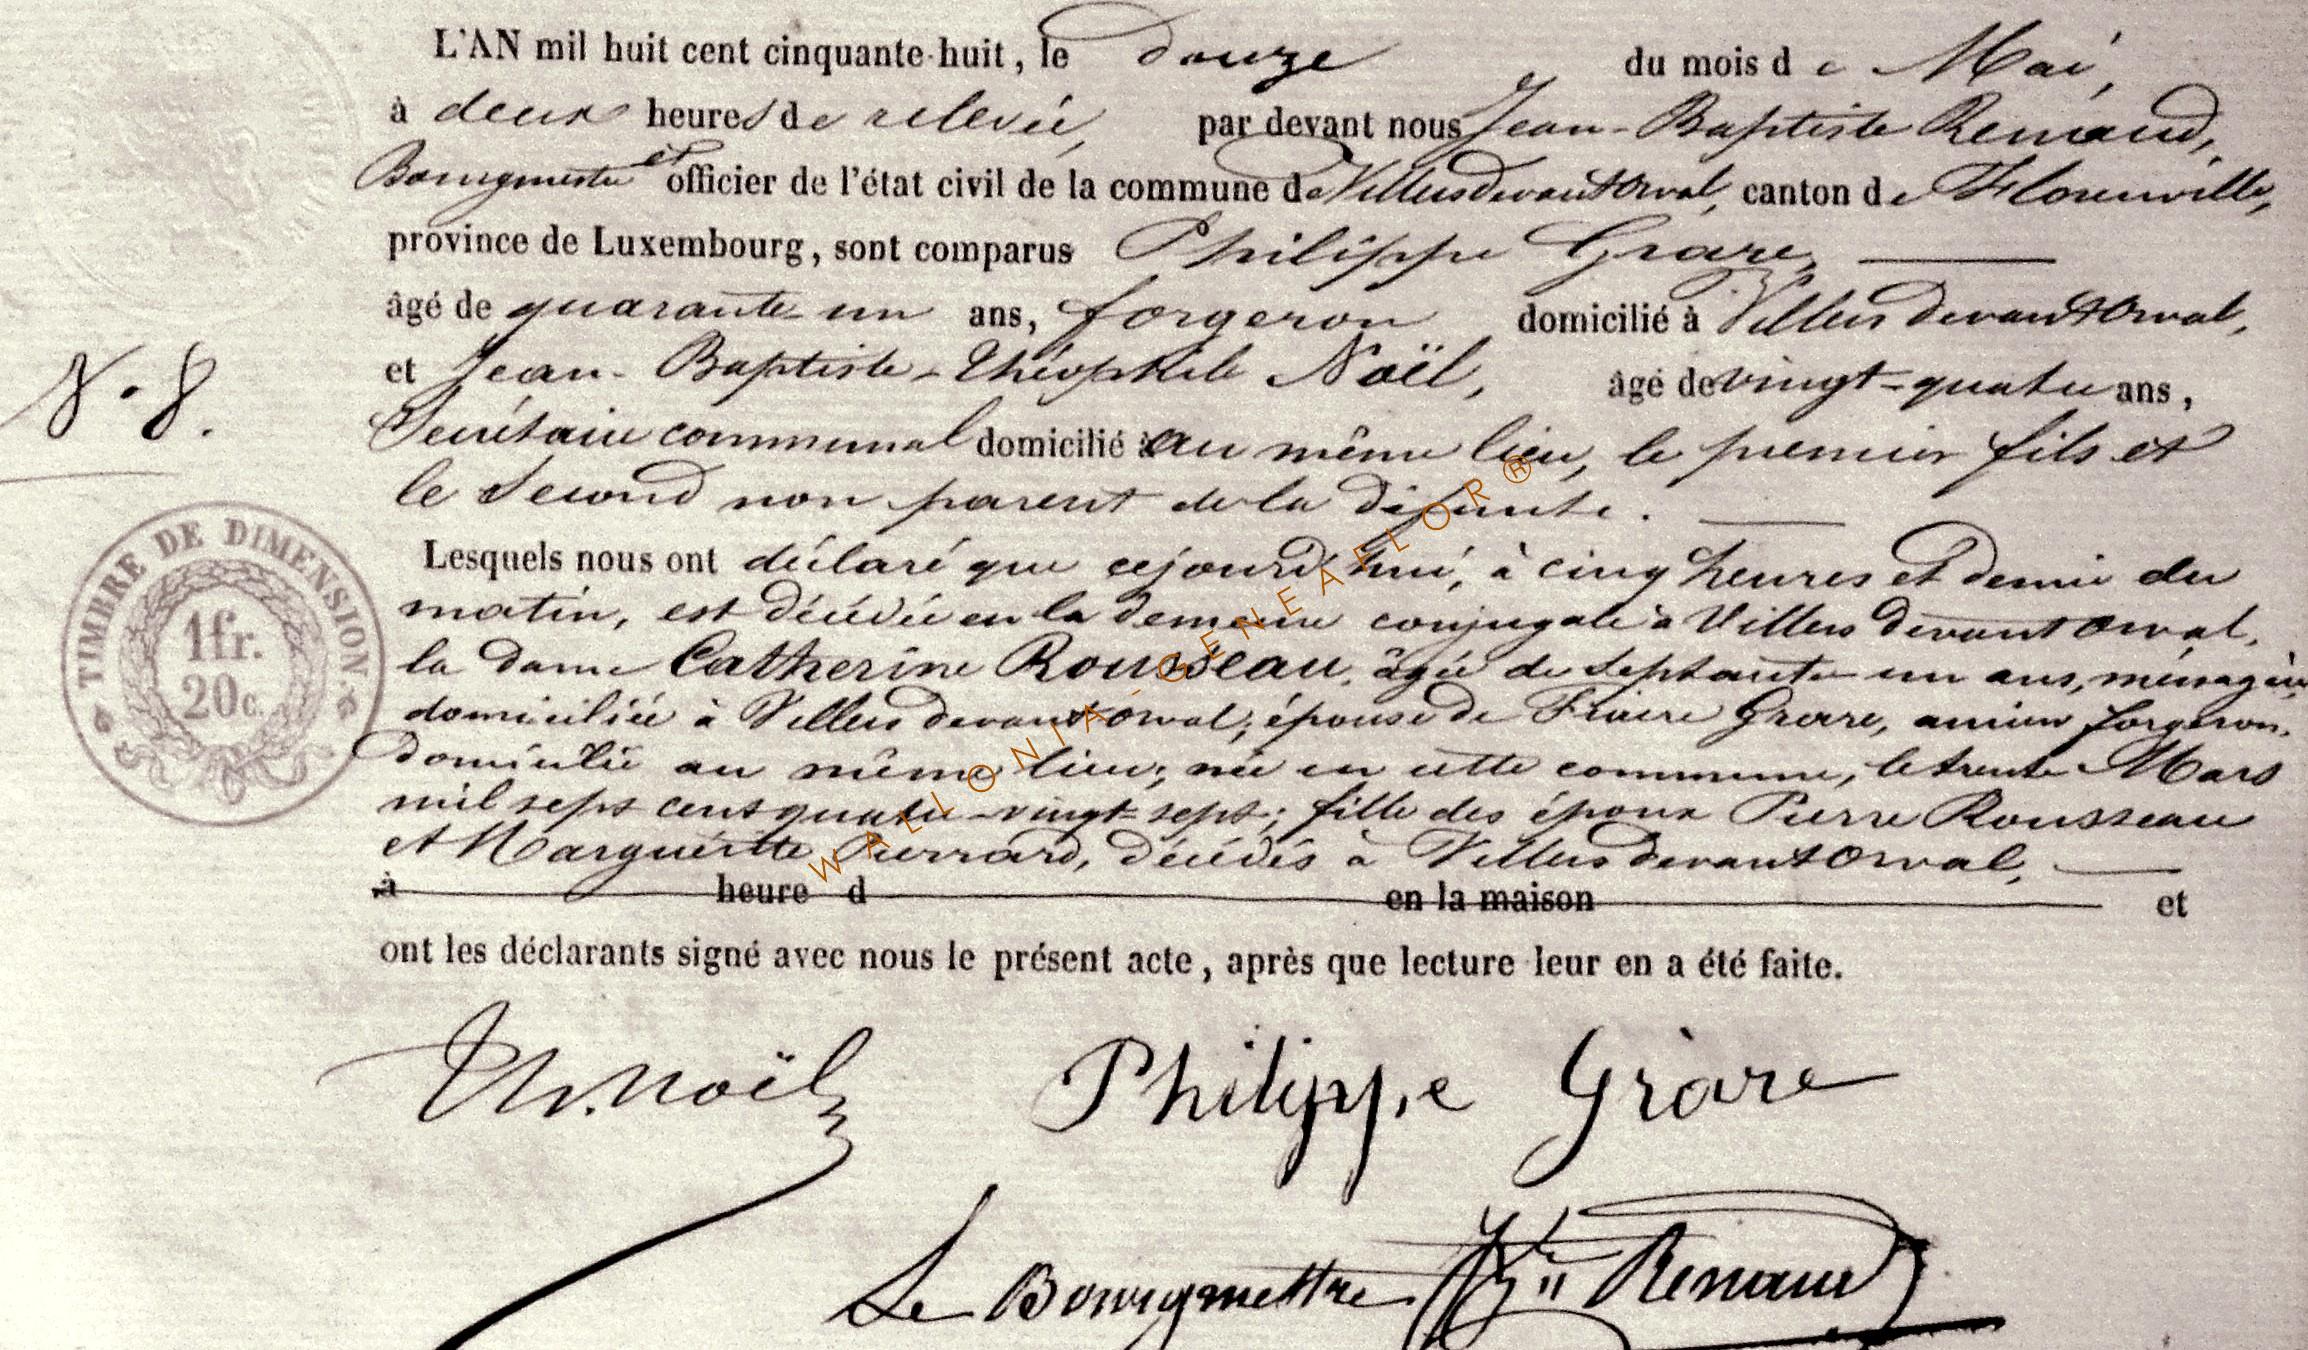 L'AN mil huit cent cinquante-huit, le douze du mois de Mai,
à deux heures de relevée, par devant nous Jean-Baptiste Renaud,
Bourgmestre et officier de l'état civil de la commune de Villers devant Orval, canton de Florenville,
province de Luxembourg, sont comparus Philippe Grare,
âgé de quarante-un ans, forgeron domicilié à Villers devant Orval,
et Jean-Baptiste-Théophile Noël, âgé de vingt-quatre ans,
N.° 8.
Secrétaire communal domicilié au même lieu, le premier fils et
le second non parent de la défunte.
Lesquels nous ont déclaré que cejourd'hui, à cinq heures et demie du
matin, est décédée en la demeure conjugale à Villers devant Orval,
la dame Catherine Rousseau, âgée de septante-un ans, ménagère,
domiciliée à Villers devant Orval, épouse de Fiacre Grare, ancien forgeron,
domicilié au même lieu; née en cette commune, le trente Mars
mil sept cent quatre-vingt-sept; fille des époux Pierre Rousseau
et Marguerite Pierrard, décédés à Villers devant Orval,
à heure d en la maison et
ont les déclarants signé avec nous le présent acte, après que lecture leur en a été faite.
TIMBRE DE DIMENSION.
1fr.
20c.
WALLONIA-GENEAFLOR®
Th. Noël
Philippe Grare
Le Bourgmestre
Renaud